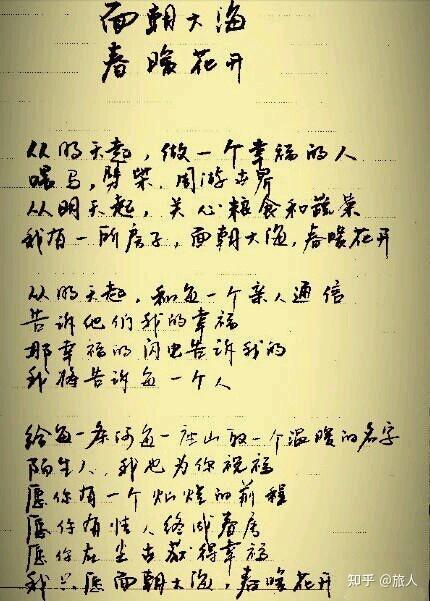 面朝大海
春暖花开
从明天起，做一个幸福的人
喂马，劈柴，周游世界
从明天起，关心粮食和蔬菜
我有一所房子，面朝大海，春暖花开
从明天起，和每一个亲人通信
告诉他们我的幸福
那幸福的闪电告诉我的
我将告诉每一个人
给每一条河每一座山取一个温暖的名字
陌生人，我也为你祝福
愿你有一个灿烂的前程
愿你有情人终成眷属
愿你在尘世获得幸福
我只愿面朝大海，春暖花开
知乎 @旅人